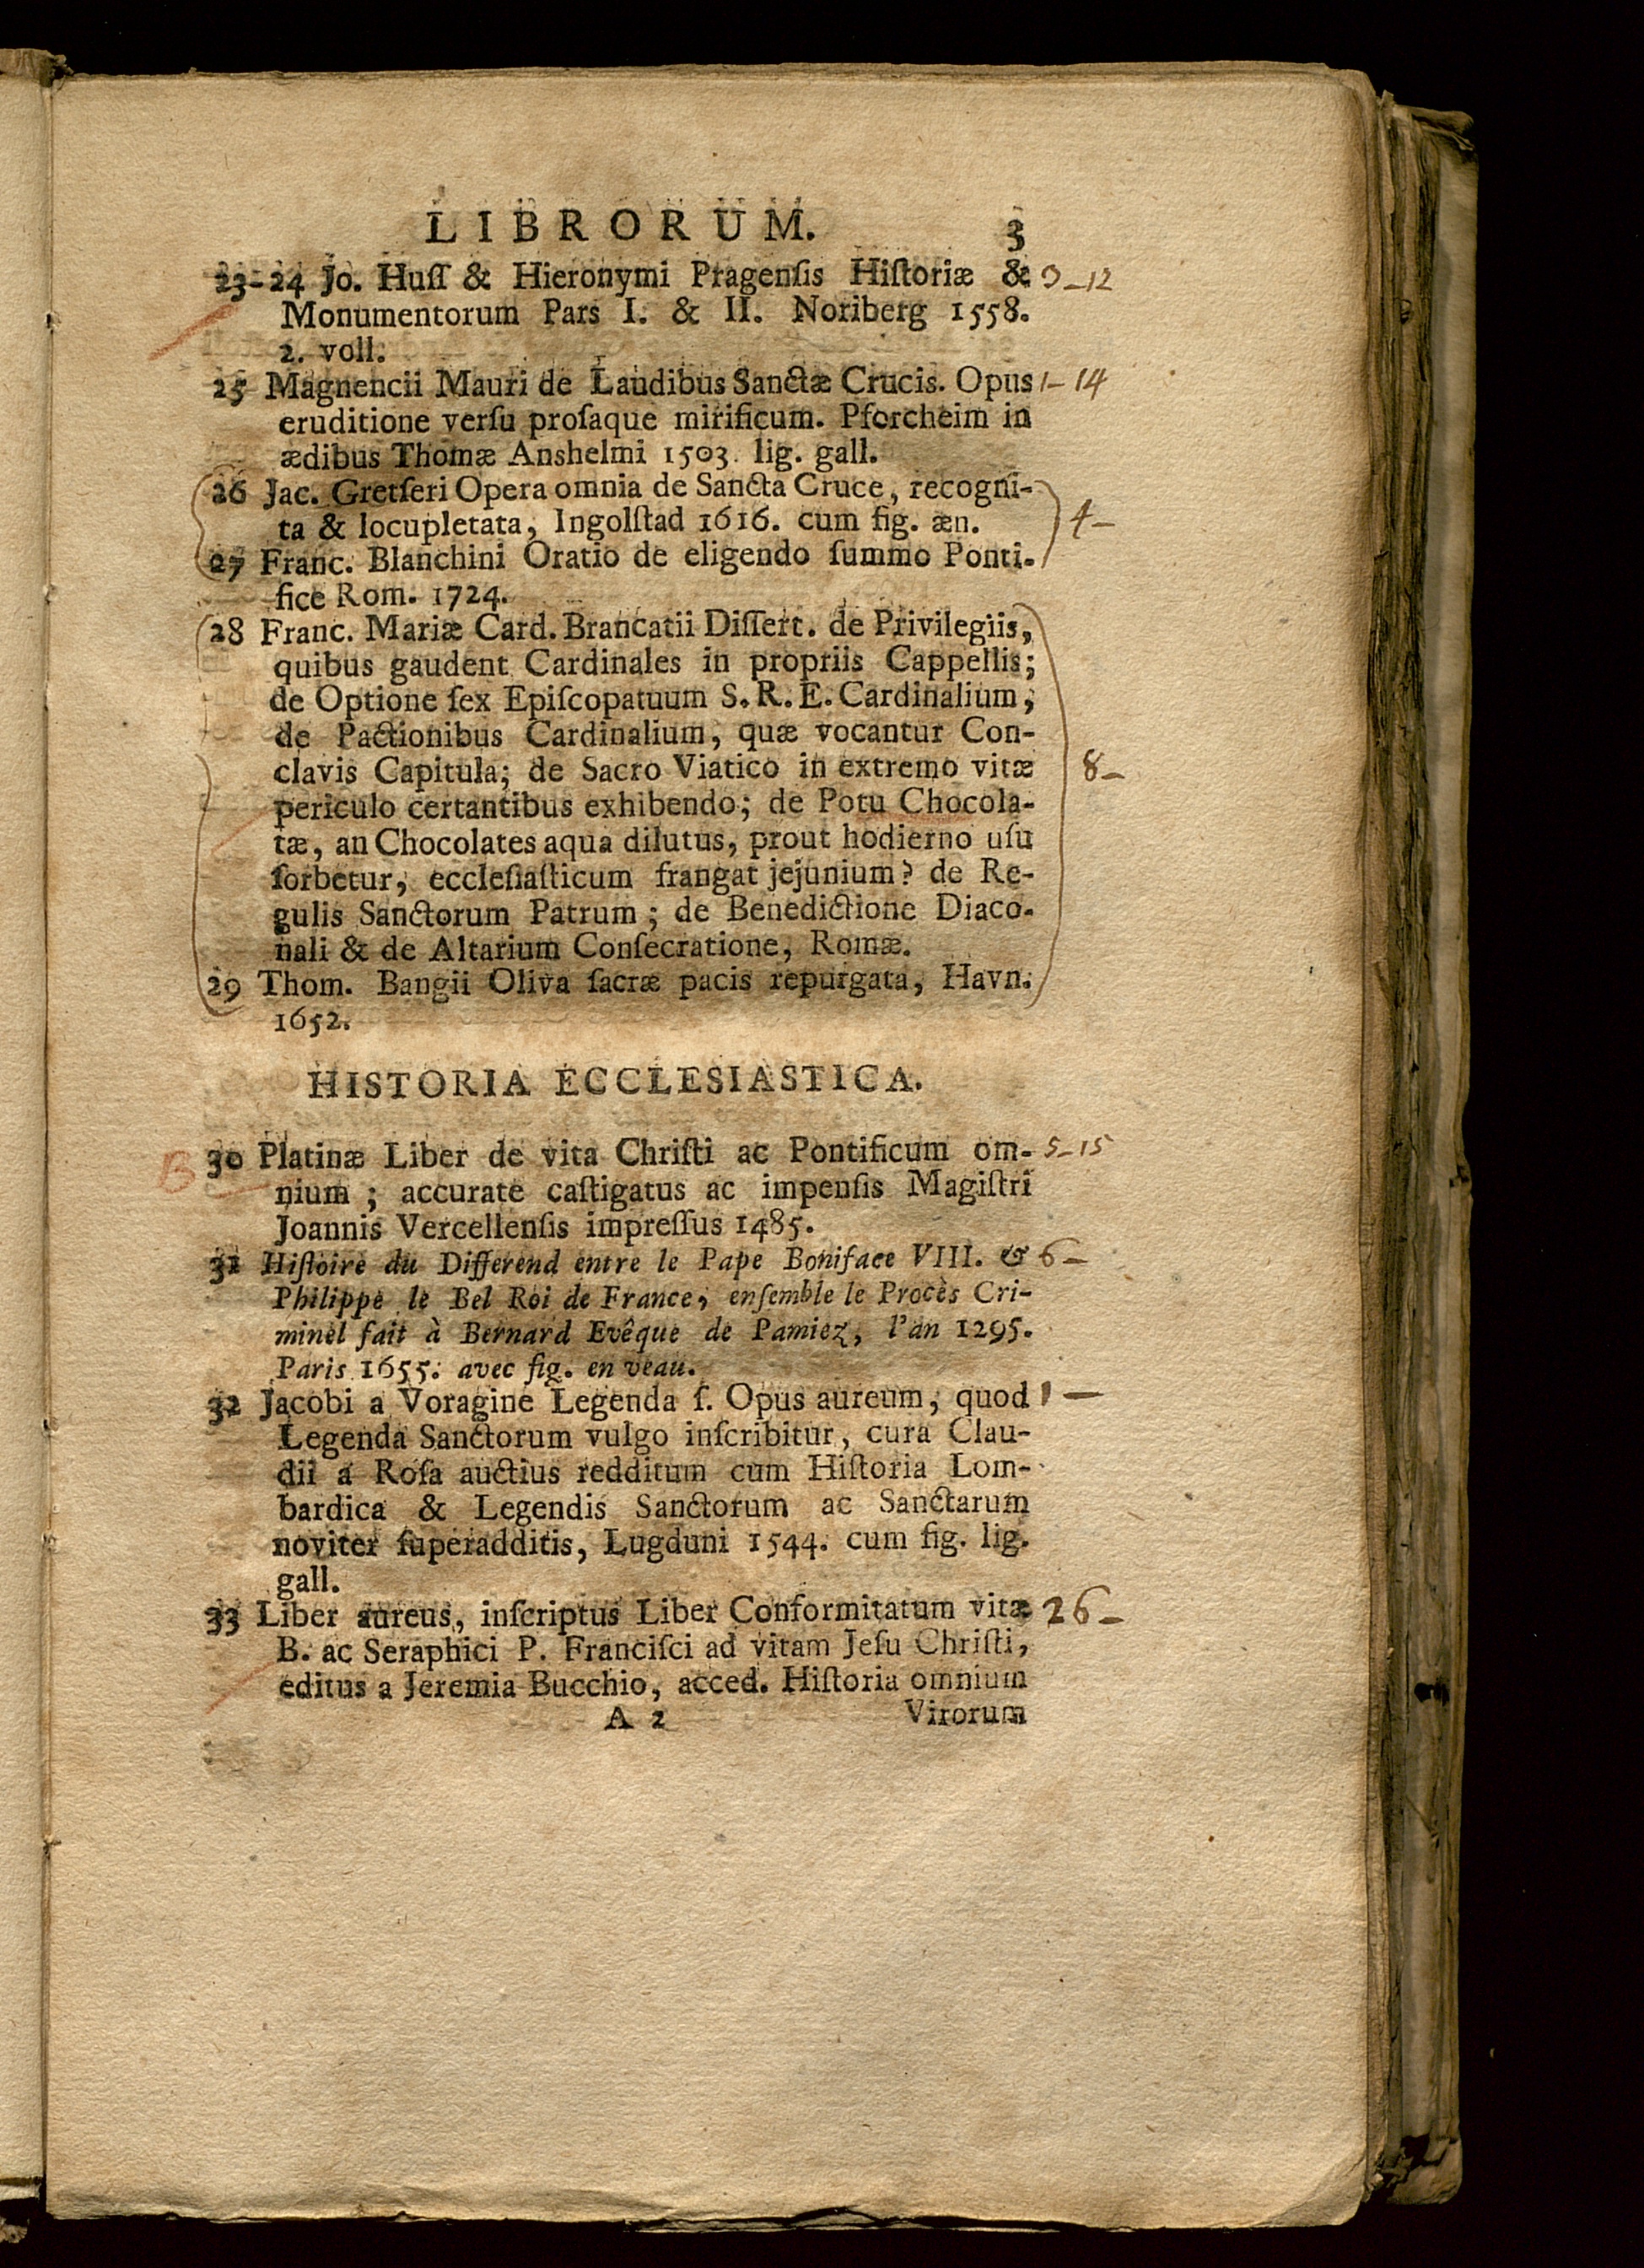 LIBRORUM. 3
23-24 Jo. Huſſ & Hieronymi Pragenſis Hiſtoriæ & 9-12
Monumentorum Pars I. & II. Noriberg 1558.
2. voll.
25 Magnencii Mauri de Laudibus Sanctæ Crucis. Opus 1-14
eruditione verſu proſaque mirificum. Pforcheim in
ædibus Thomæ Anshelmi 1503. lig. gall.
26 Jac. Gretſeri Opera omnia de Sancta Cruce, recogni-
ta & locupletata, Ingolſtad 1616. cum fig. æn. 4-
27 Franc. Blanchini Oratio de eligendo ſummo Ponti-
fice Rom. 1724.
28 Franc. Mariæ Card. Brancatii Diſſert. de Privilegiis,
quibus gaudent Cardinales in propriis Cappellis;
de Optione ſex Epiſcopatuum S. R. E. Cardinalium;
de Pactionibus Cardinalium, quæ vocantur Con-
clavis Capitula; de Sacro Viatico in extremo vitæ 8-
periculo certantibus exhibendo; de Potu Chocola-
tæ, an Chocolates aqua dilutus, prout hodierno uſu
ſorbetur, eccleſiaſticum frangat jejunium? de Re-
gulis Sanctorum Patrum; de Benedictione Diaco-
nali & de Altarium Conſecratione, Romæ.
29 Thom. Bangii Oliva ſacræ pacis repurgata, Havn.
1652.
HISTORIA ECCLESIASTICA.
B 30 Platinæ Liber de vita Chriſti ac Pontificum om- 5-15
nium; accurate caſtigatus ac impenſis Magiſtri
Joannis Vercellenſis impreſſus 1485.
31 Hiſtoire du Differend entre le Pape Boniface VIII. & 6-
Philippe le Bel Roi de France, enſemble le Procès Cri-
minel fait à Bernard Evêque de Pamiez, l'an 1295.
Paris 1655. avec fig. en veau.
32 Jacobi a Voragine Legenda ſ. Opus aureum, quod 1-
Legenda Sanctorum vulgo inſcribitur, cura Clau-
dii a Roſa auctius redditum cum Hiſtoria Lom-
bardica & Legendis Sanctorum ac Sanctarum
noviter ſuperadditis, Lugduni 1544. cum fig. lig.
gall.
33 Liber aureus, inſcriptus Liber Conformitatum vitæ 26-
B. ac Seraphici P. Franciſci ad vitam Jeſu Chriſti,
editus a Jeremia Bucchio, acced. Hiſtoria omnium
A 2 Virorum